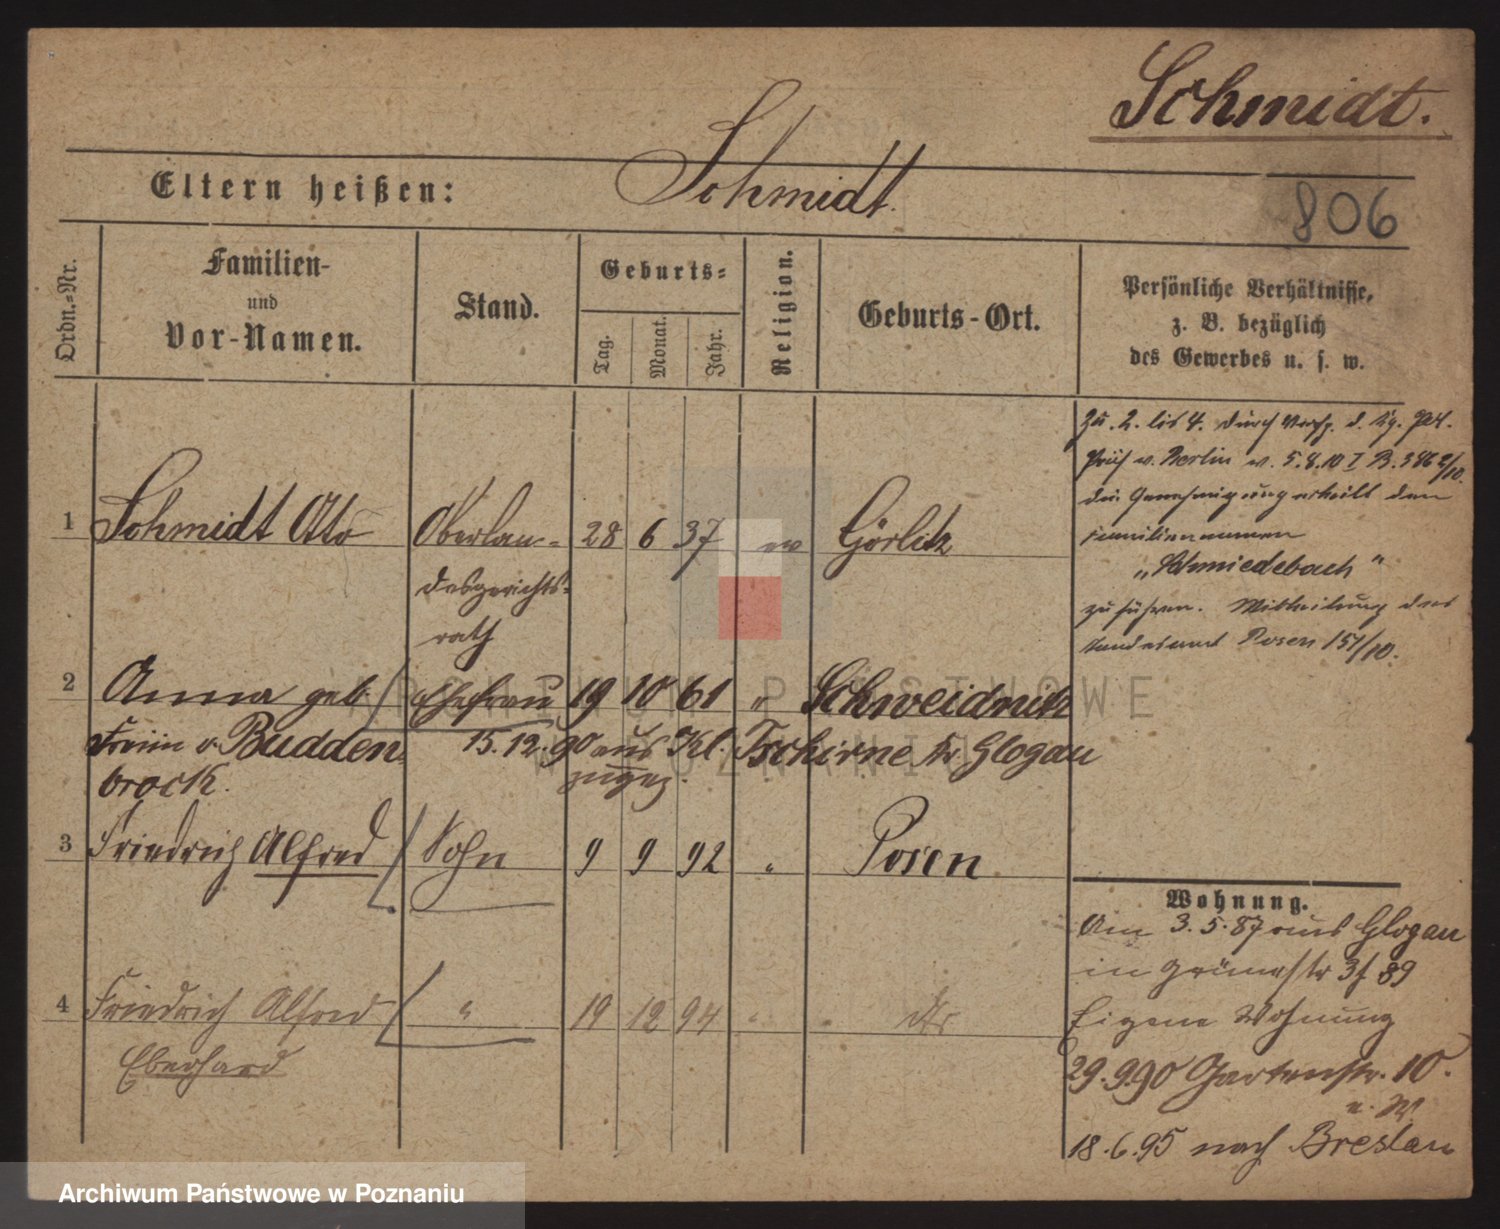 Schmidt.
Eltern heißen: Schmidt.
806
Ordn.=Nr.
Familien-
und
Vor-Namen.
Stand.
Geburts=
Tag.
Monat.
Jahr.
Religion.
Geburts-Ort.
Persönliche Verhältnisse,
z. B. bezüglich
des Gewerbes u. s. w.
1 Schmidt Otto Oberlan= 28 6 37 ev Görlitz
desgerichts=
rath
2 Anna geb. Ehefrau 19 10 61 " Schweidnitz
Freiin v. Budden=
brock.
15.12.90 aus Kl. Tschirne Kr Glogau
zugez.
3 Friedrich Alfred Sohn 9 9 92 " Posen
4 Friedrich Alfred " 19 12 94 " dto
Eberhard
Zu. 2. bis 4. durch Verfg. d. Kg. Pol.
Präs v. Berlin v. 5.8.10 I B. 386 2/10.
die Genehmigung erteilt den
Familiennamen
"Schmiedebach"
zu führen. Mitteilung des
Standesamt Posen 151/10.
Wohnung.
Am 3.5.87 aus Glogau
in Grünestr 3 f 89
Eigene Wohnung
29.9.90 Gartenstr. 10.
e. W.
18.6.95 nach Breslau
ARCHIWUM PAŃSTWOWE
W POZNANIU
Archiwum Państwowe w Poznaniu